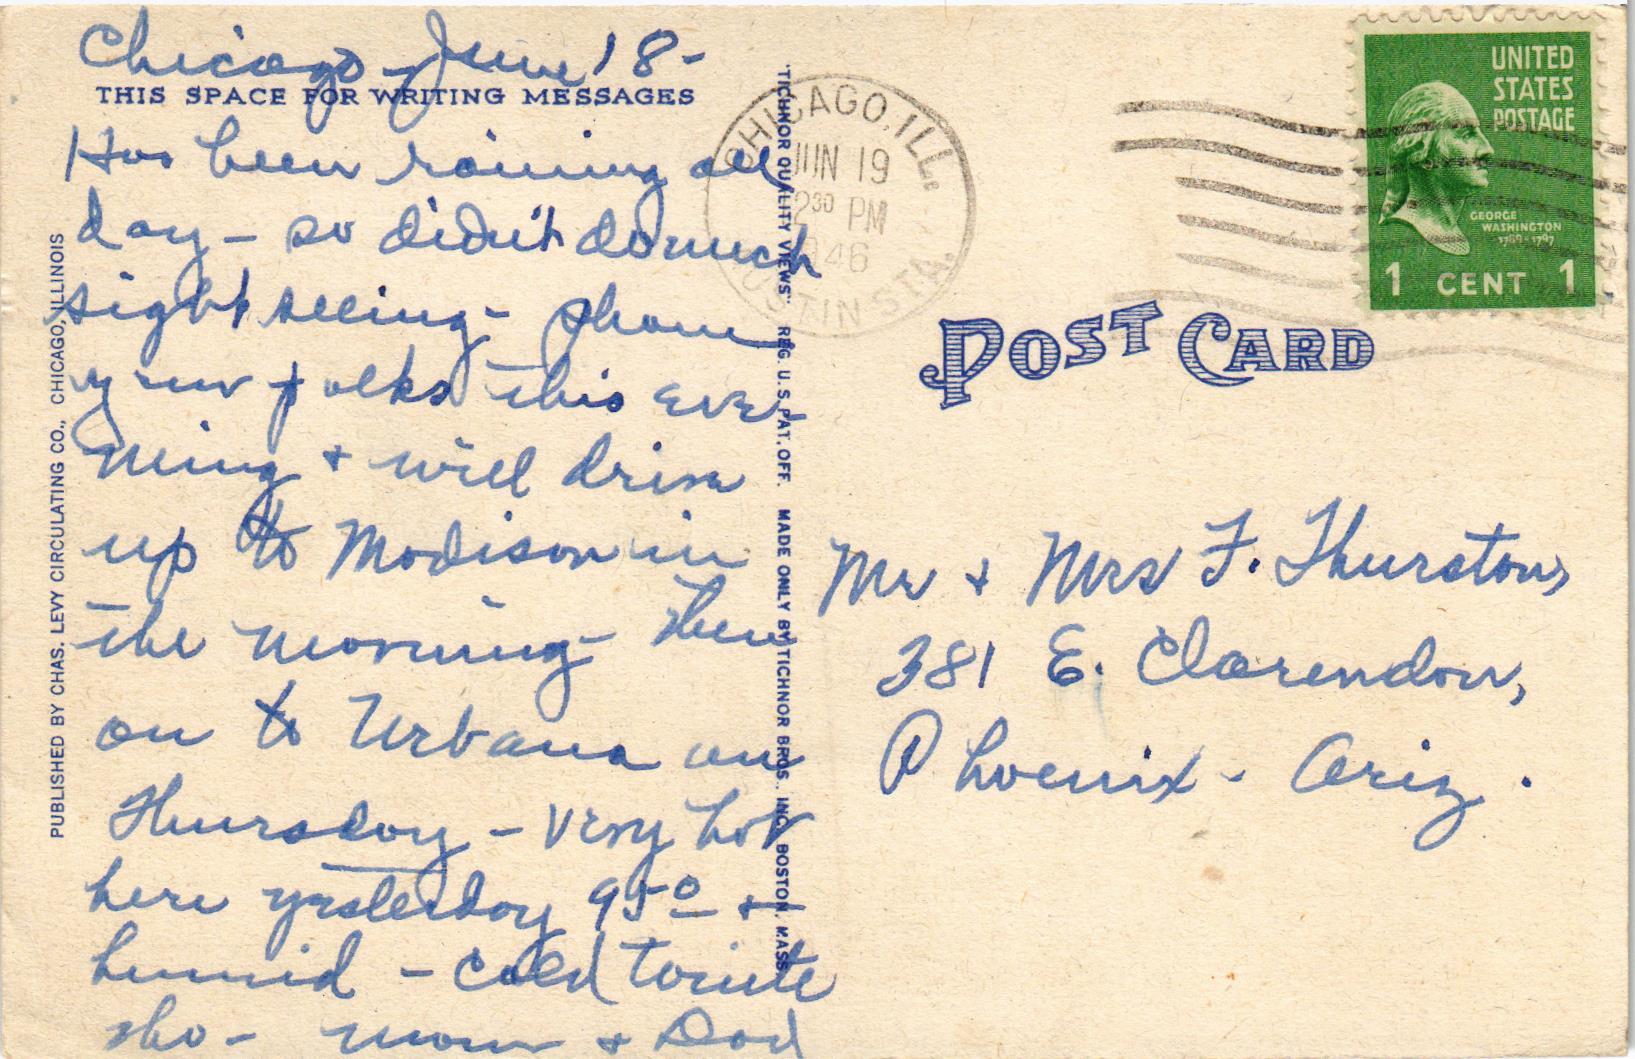 Chicago - June 18 -
THIS SPACE FOR WRITING MESSAGES
Has been raining all
day - so didn't do much
sight seeing - Phone
your folks this eve-
ning + will drive
up to Madison in
the morning - then
on to Urbana on
Thursday - very hot
here yesterday 95° +
humid - cold tonite
tho - Mom + Dad
PUBLISHED BY CHAS. LEVY CIRCULATING CO., CHICAGO, ILLINOIS
"TICHNOR QUALITY VIEWS" REG. U. S. PAT. OFF. MADE ONLY BY TICHNOR BROS., INC., BOSTON, MASS
CHICAGO, ILL.
JUN 19
2 30 PM
1946
AUSTIN STA.
UNITED
STATES
POSTAGE
GEORGE
WASHINGTON
1789-1797
1 CENT 1
POST CARD
Mr + Mrs F. Thurston,
381 E. Clarendon,
Phoenix - Ariz.